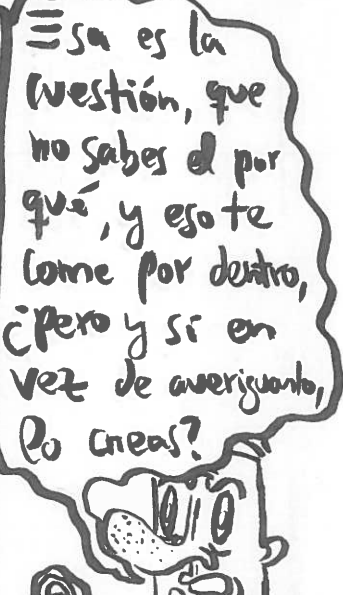 Esa es la
cuestión, que
no sabes el por
qué, y eso te
come por dentro,
¿Pero y si en
vez de averiguarlo,
lo creas?